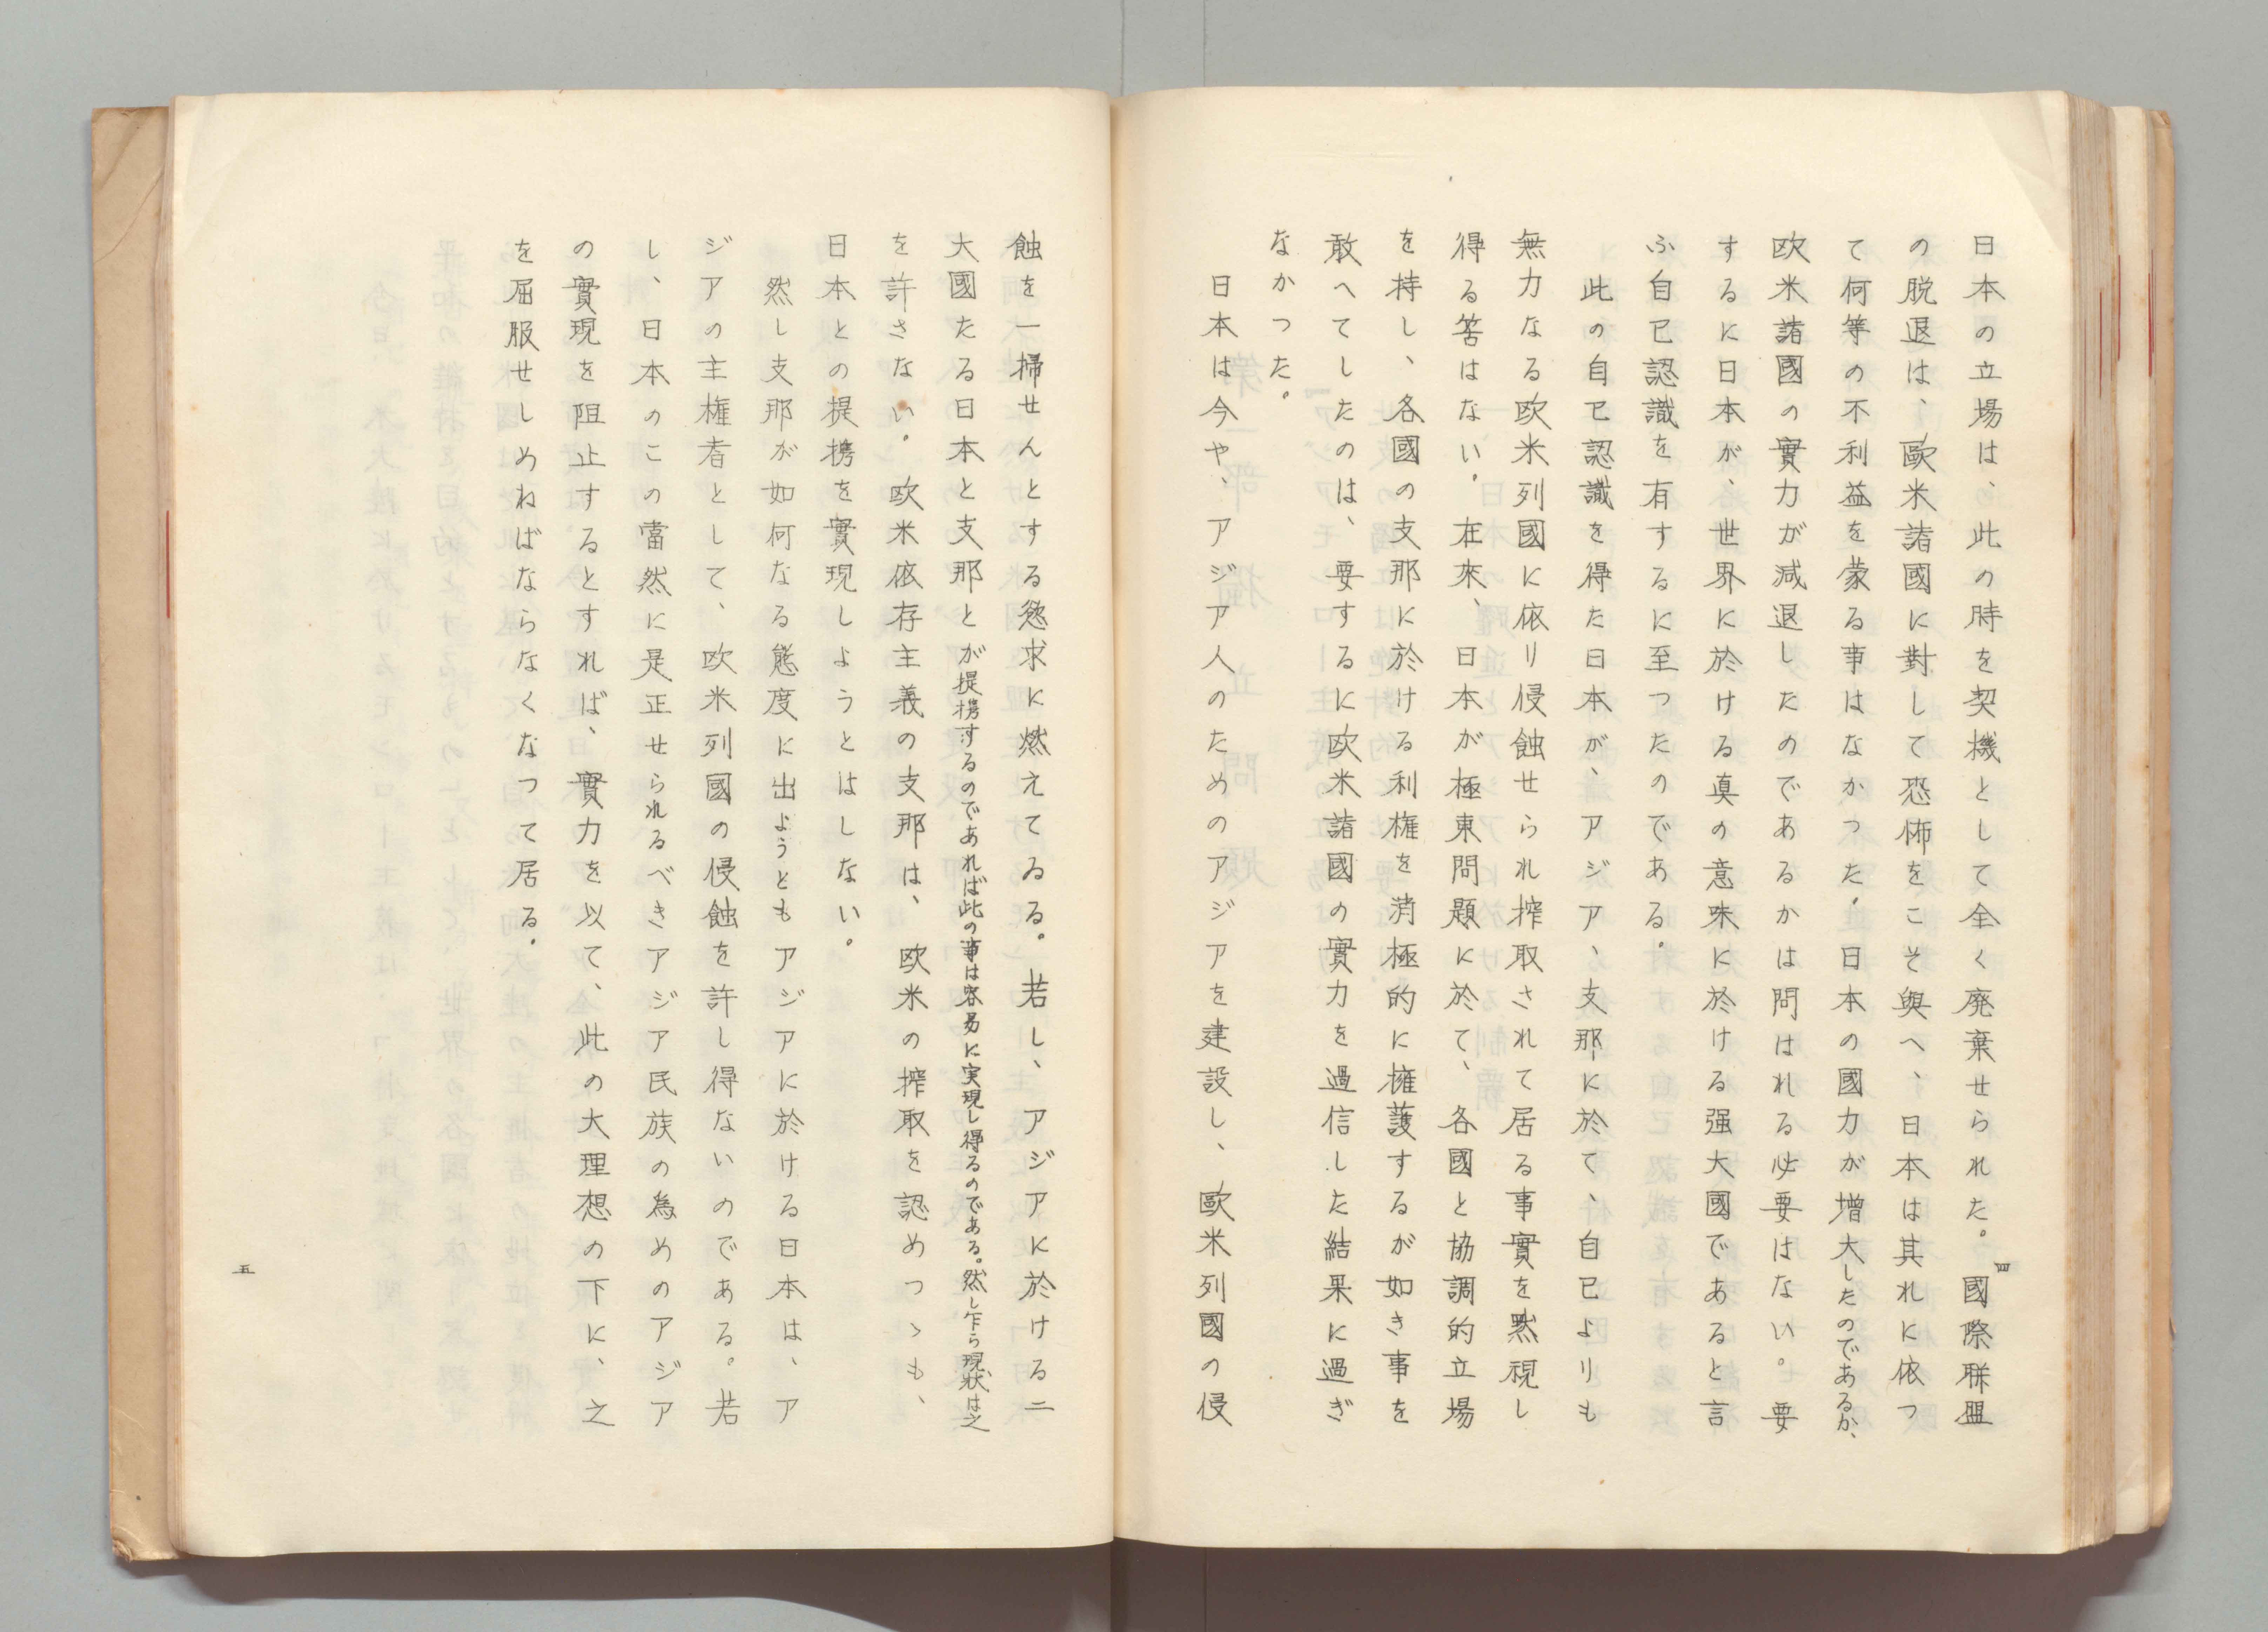 日本の立場は、此の時を契機として全く廃棄せられた。國際聯盟
の脱退は、歐米諸國に對して恐怖をこそ與へ、日本は其れに依つ
て何等の不利益を蒙る事はなかつた。日本の國力が増大したのであるか、
欧米諸國の實力が減退したのであるかは問はれる必要はない。要
するに日本が、世界に於ける真の意味に於ける强大國であると言
ふ自己認識を有するに至つたのである。
此の自己認識を得た日本が、アジア、支那に於て、自己よりも
無力なる欧米列國に依り侵蝕せられ搾取されて居る事實を黙視し
得る筈はない。在來、日本が極東問題に於て、各國と協調的立場
を持し、各國の支那に於ける利権を消極的に擁護するが如き事を
敢へてしたのは、要するに欧米諸國の實力を過信した結果に過ぎ
なかつた。
日本は今や、アジア人のためのアジアを建設し、歐米列國の侵
四
蝕を一掃せんとする慾求に燃えてゐる。若し、アジアに於ける二
大國たる日本と支那とが提携するのであれば此の事は容易に実現し得るのである。然し乍ら現狀は之
を許さない。欧米依存主義の支那は、欧米の搾取を認めつゝも、
日本との提携を實現しようとはしない。
然し支那が如何なる態度に出ようともアジアに於ける日本は、ア
ジアの主権者として、欧米列國の侵蝕を許し得ないのである。若
し、日本のこの當然に是正せられるべきアジア民族の為めのアジア
の實現を阻止するとすれば、實力を以て、此の大理想の下に、之
を屈服せしめねばならなくなつて居る。
五